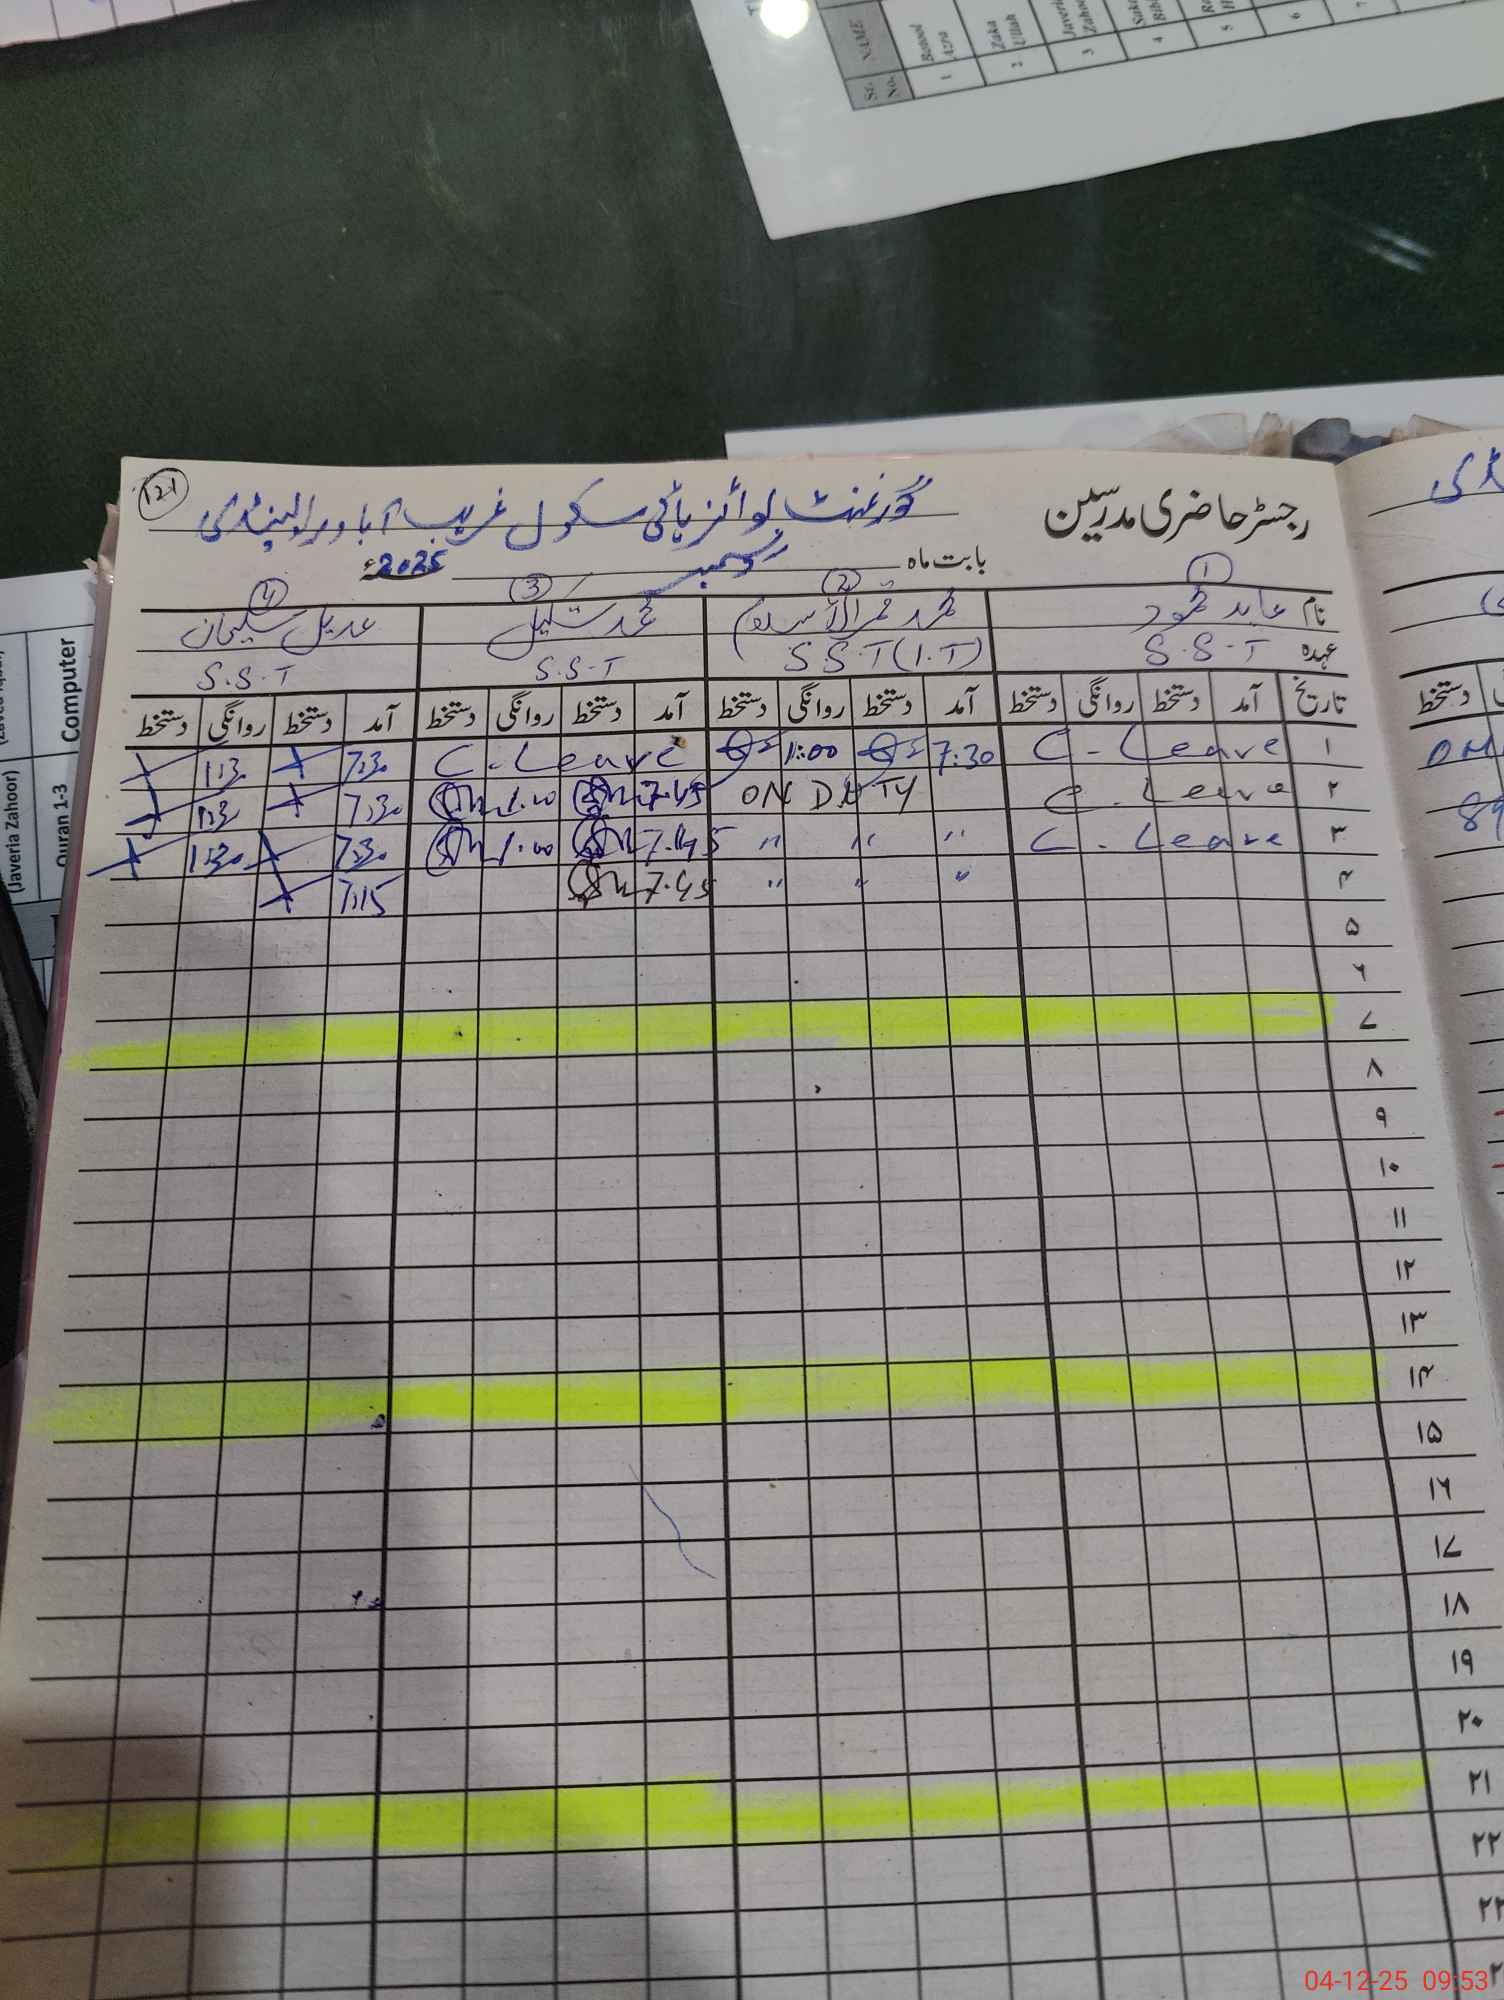 Sr. No. NAME
1 Batool Azra
2 Zaka Ullah
3
4
5
6
7
121
رجسٹر حاضری مدرسین
گورنمنٹ بوائز ہائی سکول غریب آباد راولپنڈی
بابت ماہ دسمبر 2025ء
1 2 3 4
نام عابد محمود محمد قمر الاسلام محمد شکیل عدیل سلیمان
عہدہ S.S.T S.S.T (I.T) S.S.T S.S.T
تاریخ آمد دستخط روانگی دستخط آمد دستخط روانگی دستخط آمد دستخط روانگی دستخط آمد دستخط روانگی دستخط
۱ C. Leave 7:30 1:00 C. Leave 7:30 1:30
۲ C. Leave ON DUTY 7:45 1:00 7:30 1:30
۳ C. Leave " " " 7:45 1:00 7:30 1:30
۴ " " " 7:45 7:15
۵
۶
۷
۸
۹
۱۰
۱۱
۱۲
۱۳
۱۴
۱۵
۱۶
۱۷
۱۸
۱۹
۲۰
۲۱
۲۲
۲۳
دستخط
Computer
(Javeria Zahoor)
Quran 1-3
04-12-25 09:53